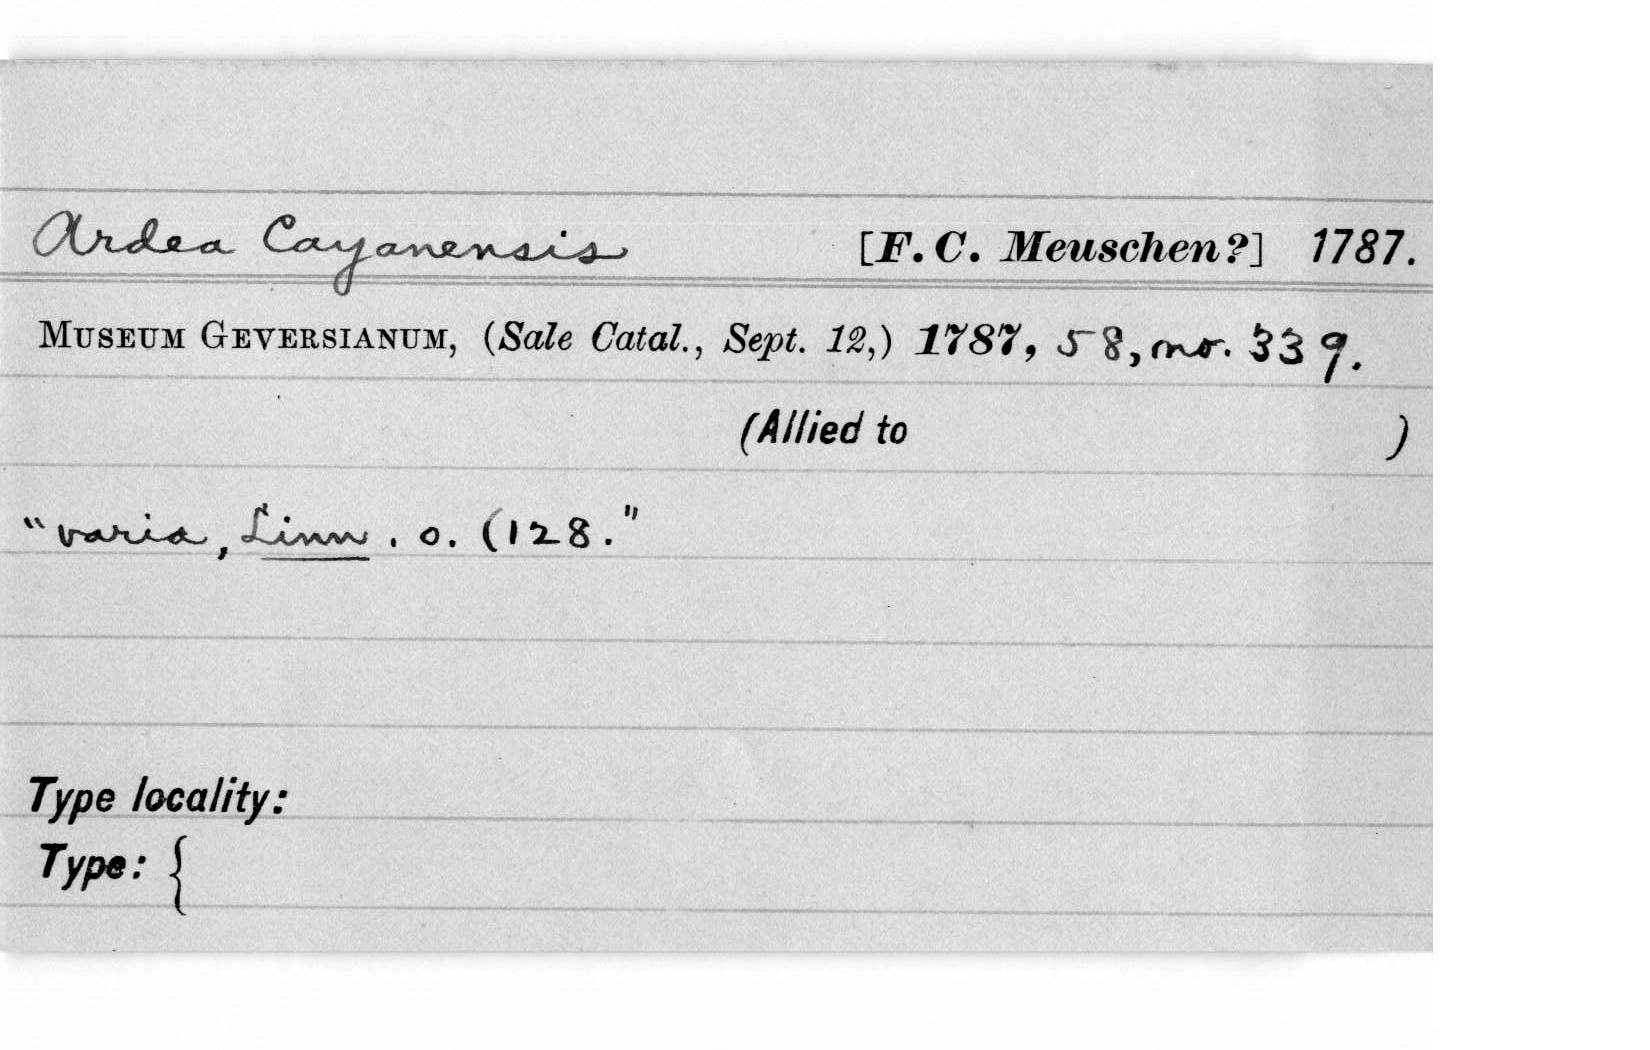 Ardea Cayanensis [F. C. Meuschen?] 1787.
MUSEUM GEVERSIANUM, (Sale Catal., Sept. 12,) 1787, 58, no. 339.
(Allied to )
"varia, Linn. o. (128."
Type locality:
Type: {